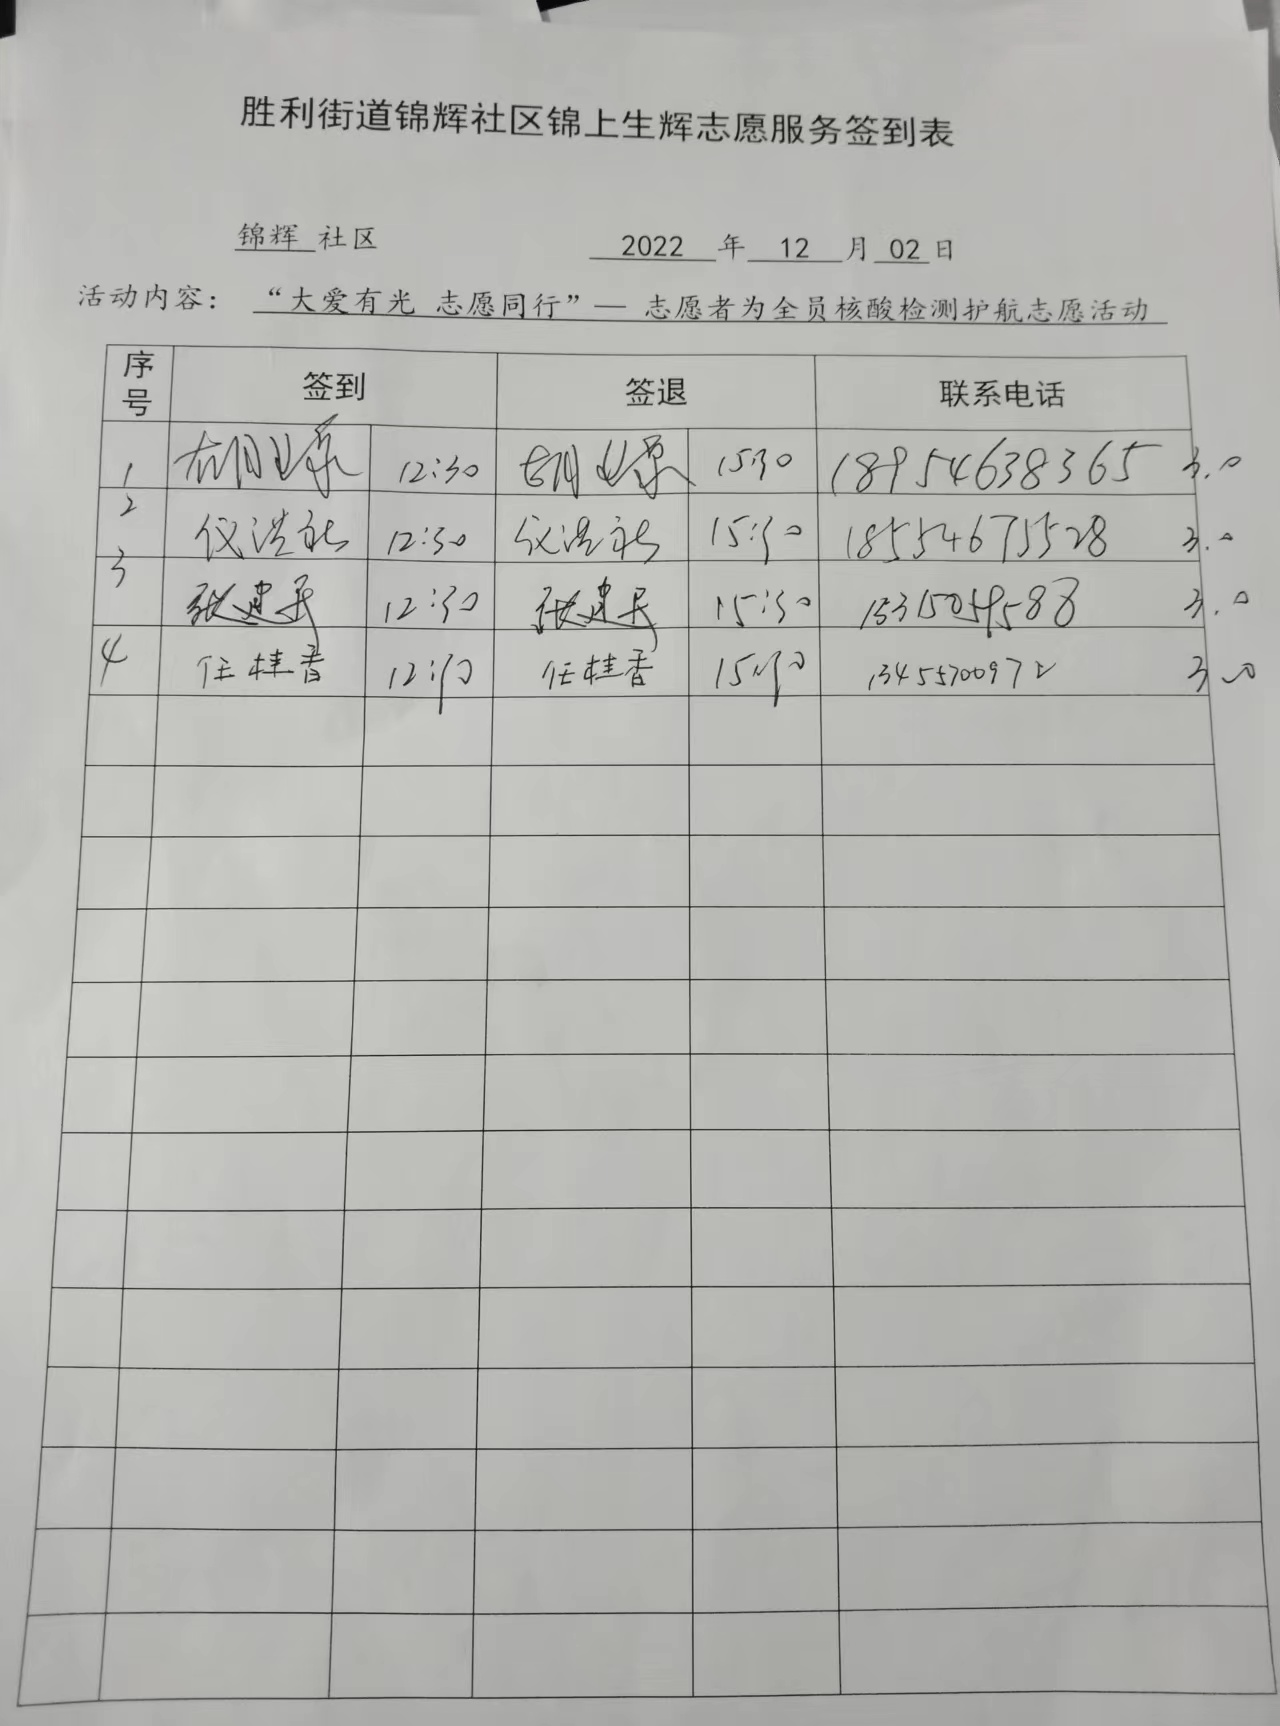 胜利街道锦辉社区锦上生辉志愿服务签到表
锦辉 社区 2022 年 12 月 02 日
活动内容： “大爱有光 志愿同行”— 志愿者为全员核酸检测护航志愿活动
序号 签到 签退 联系电话
1 12:30 15:30 18954638365 3.0
2 仪洪 12:30 仪洪 15:30 18554675528 3.0
3 张建民 12:30 张建民 15:30 3.0
4 任桂香 12:30 任桂香 15:30 13455700972 3.0